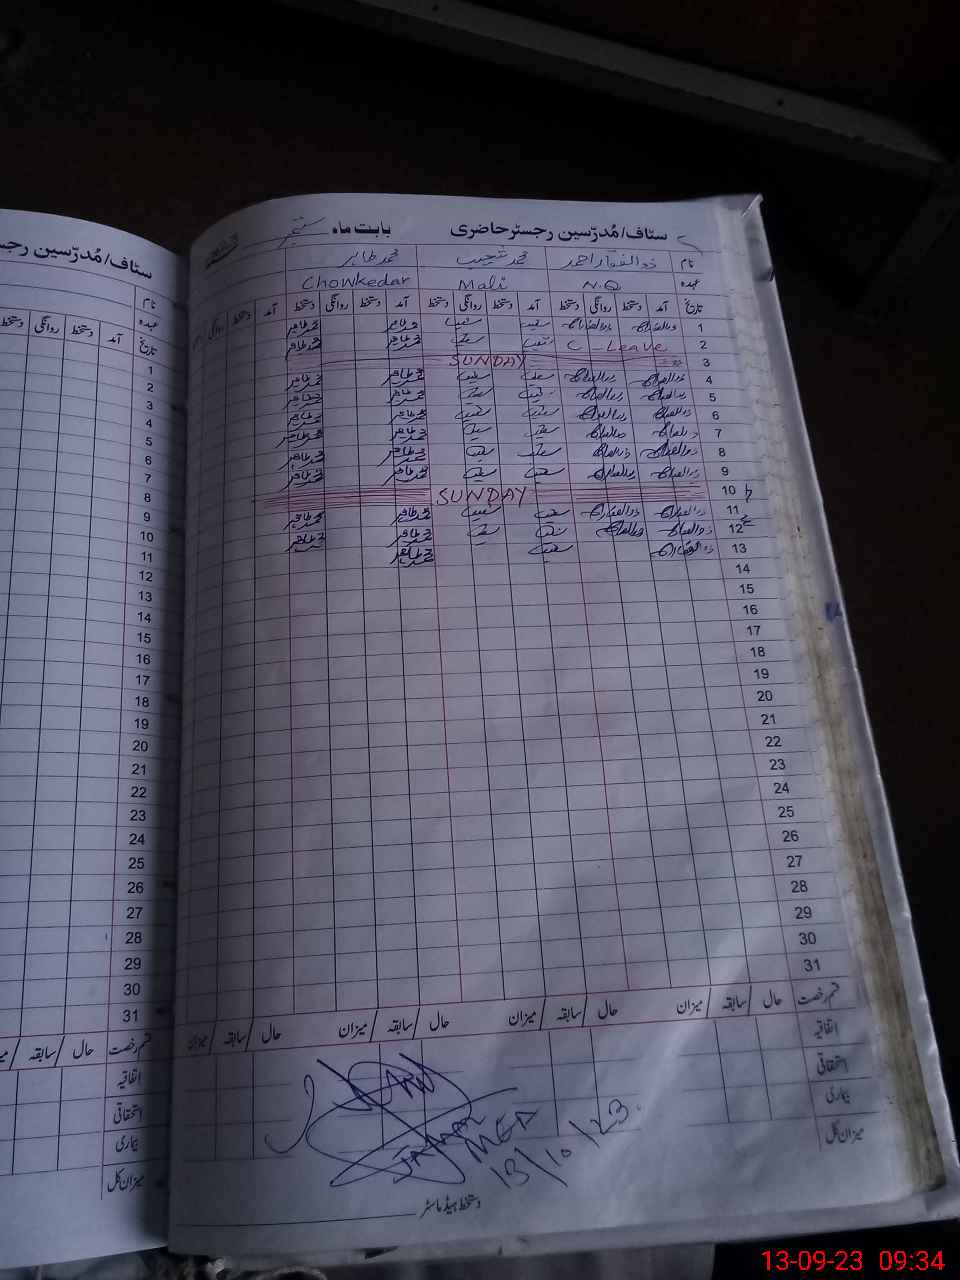 سٹاف/مُدرّسین رجسٹر حاضری بابت ماہ ستمبر
نام ذوالفقار احمد محمد شعیب محمد طاہر
عہدہ N.Q Mali Chowkedar
تاریخ آمد دستخط روانگی دستخط آمد دستخط روانگی دستخط آمد دستخط روانگی دستخط آمد دستخط روانگی
1 ذوالفقار ذوالفقار شعیب شعیب محمد طاہر محمد طاہر
2 C-Leave شعیب شعیب محمد طاہر محمد طاہر
3 SUNDAY
4 ذوالفقار ذوالفقار شعیب شعیب محمد طاہر محمد طاہر
5 ذوالفقار ذوالفقار شعیب شعیب محمد طاہر محمد طاہر
6 ذوالفقار ذوالفقار شعیب شعیب محمد طاہر محمد طاہر
7 ذوالفقار ذوالفقار شعیب شعیب محمد طاہر محمد طاہر
8 ذوالفقار ذوالفقار شعیب شعیب محمد طاہر محمد طاہر
9 ذوالفقار ذوالفقار شعیب شعیب محمد طاہر محمد طاہر
10 SUNDAY
11 ذوالفقار ذوالفقار شعیب شعیب محمد طاہر محمد طاہر
12 ذوالفقار ذوالفقار شعیب شعیب محمد طاہر محمد طاہر
13 ذوالفقار شعیب محمد طاہر
14
15
16
17
18
19
20
21
22
23
24
25
26
27
28
29
30
31
قسم رخصت حال / سابقہ / میزان حال / سابقہ / میزان حال / سابقہ / میزان حال / سابقہ / میزان
اتفاقیہ
استحقاقی
بیماری
میزان کل
MEA
13/10/23
دستخط ہیڈ ماسٹر
سٹاف/مُدرّسین
نام
عہدہ
تاریخ آمد دستخط روانگی دستخط
1
2
3
4
5
6
7
8
9
10
11
12
13
14
15
16
17
18
19
20
21
22
23
24
25
26
27
28
29
30
31
قسم رخصت حال / سابقہ /
اتفاقیہ
استحقاقی
بیماری
میزان کل
13-09-23 09:34